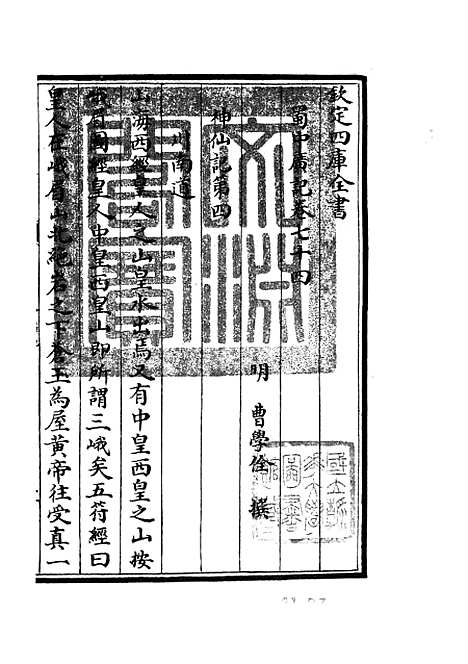 欽定四庫全書
蜀中廣記卷七十四
明 曹學佺 撰
神仙記第四
川南道
山海西經皇人之山皇水出焉又有中皇西皇之山按
峨眉圖經皇人中皇西皇山即所謂三峨矣五符經曰
皇人在峨眉山北絶岩之下蒼玉為屋黄帝往受真一